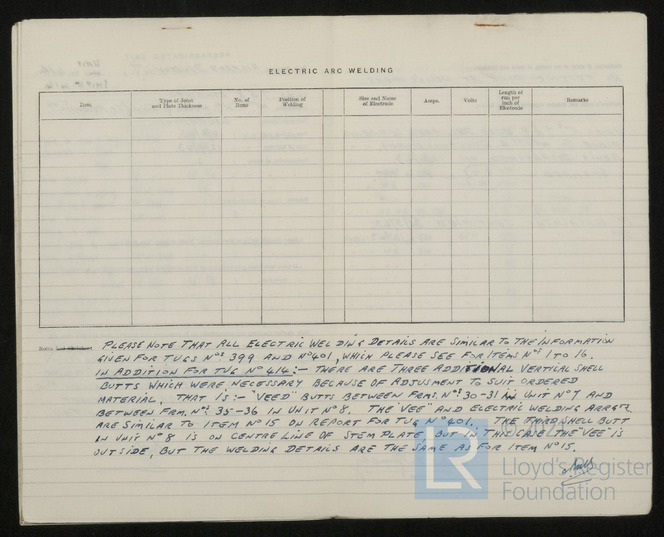 ELECTRIC ARC WELDING
Item
Type of Joint and Plate Thickness
No. of Runs
Position of Welding
Size and Name of Electrode
Amps.
Volts
Length of run per inch of Electrode
Remarks
Notes and Sketches:
PLEASE NOTE THAT ALL ELECTRIC WELDING DETAILS ARE SIMILAR TO THE INFORMATION
GIVEN FOR TUGS Nos 399 AND No 401, WHICH PLEASE SEE FOR ITEMS Nos 1 TO 16.
IN ADDITION FOR TUG No 414:- THERE ARE THREE ADDITIONAL VERTICAL SHELL
BUTTS WHICH WERE NECESSARY BECAUSE OF ADJUSMENT TO SUIT ORDERED
MATERIAL, THAT IS:- "VEED" BUTTS BETWEEN FRMS. Nos 30-31 IN UNIT No 7 AND
BETWEEN FRM. Nos 35-36 IN UNIT No 8. THE "VEE" AND ELECTRIC WELDING ARRGT.
ARE SIMILAR TO ITEM No 15 ON REPORT FOR TUG No 401. THE THIRD SHELL BUTT
IN UNIT No 8 IS ON CENTRE LINE OF STEM PLATE BUT IN THIS CASE THE "VEE" IS
OUTSIDE, BUT THE WELDING DETAILS ARE THE SAME AS FOR ITEM No 15.
LR
Lloyd's Register
Foundation